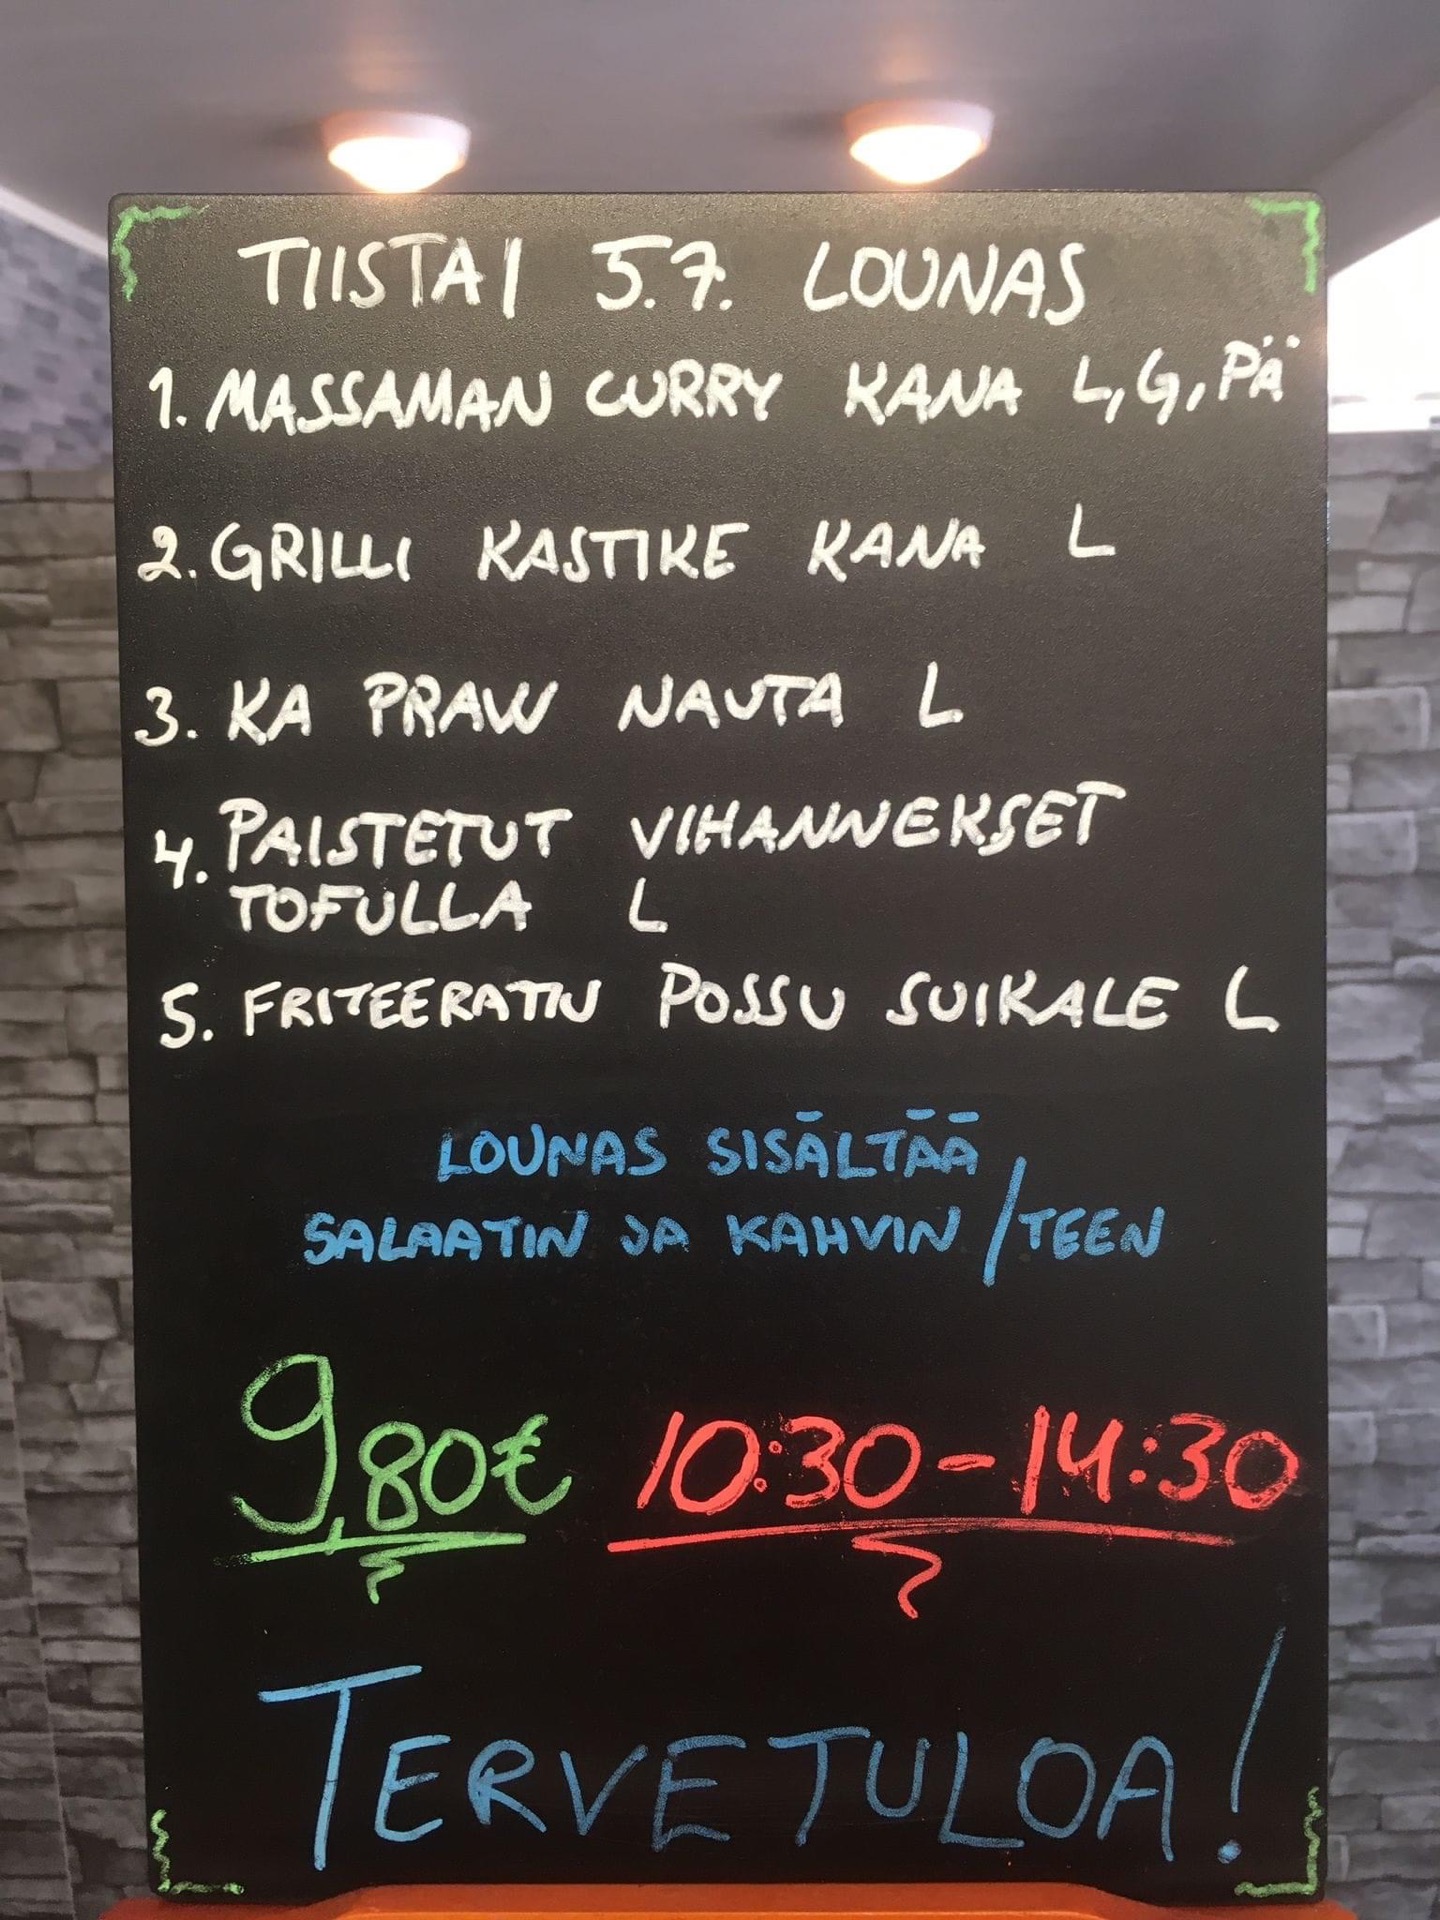 TIISTAI 5.7. LOUNAS
1. MASSAMAN CURRY KANA L, G, PÄ
2. GRILLI KASTIKE KANA L
3. KA PRAW NAUTA L
4. PAISTETUT VIHANNEKSET
TOFULLA L
5. FRITEERATIN POSSU SUIKALE L
LOUNAS SISÄLTÄÄ
SALAATIN JA KAHVIN/TEEN
9,80€ 10:30-14:30
TERVETULOA!